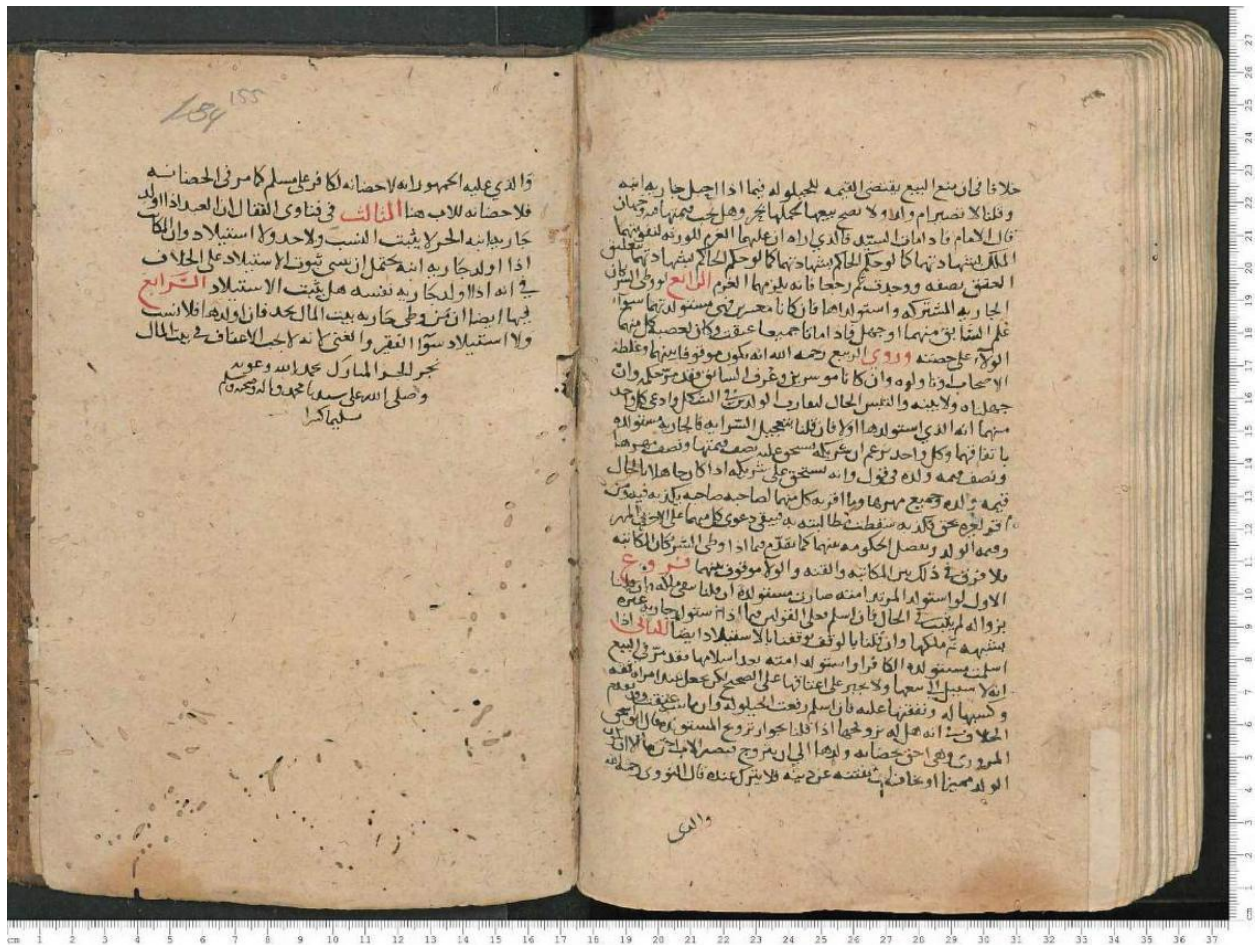 خلافا في ان منع البيع يقتضي القيمه للحيلوله فيما اذا احبل جاريه ابنه
وقلنا لا تصير ام ولد ولا يصح بيعها لحملها بحر وهل يجب قيمتها فيه وجهان
قال الامام فاذا مات السيد فالذي اراه ان عليهما الغرم للورثه لتفويتهما
الملك بشهادتهما كما لو حكم الحاكم بشهادتهما
العتق بصفه ووجدت ثم رجعا فانه يلزمهما الغرم الرابع لو وطي الشريكان
الجاريه المشتركه واستولداها فان كانا معسرين فهي مستولدتهما سواء
علم السابق منهما او جهل فاذا ماتا جميعا عتقت وكان لعصبه كل منهما
الولاء على حصته وروي الربيع رحمه الله انه يكون موقوفا بينهما وغلطه
الاصحاب وتاولوه وان كانا موسرين وعرف السابق فقد مر حكمه وان
جهلناه ولا بينه والتمس الحال لتقارب الولدين في الشكل وادعى كل واحد
منهما انه الذي استولدها اولا فان قلنا بتعجيل السرايه فالجاريه مستولده
باتفاقهما وكل واحد يزعم ان شريكه يستحق عليه نصف قيمتها ونصف مهرها
ونصف قيمه ولده في قول وانه يستحق على شريكه
قيمه ولده وجميع مهرها وما اقر به كل منهما لصاحبه صاحبه يكذبه فيه ومن
اقر لغيره بحق فكذبه سقطت مطالبته به فيبقى دعوى كل منهما على الاخر في المهر
وقيمه الولد وتفصل الحكومه بينهما كما تقدم فيما اذا وطي الشريكان المكاتبه
ولا فرق في ذلك بين المكاتبه والقنه والولا موقوف بينهما فروع
الاول لو استولد المرتد امته صارت مستولده ان قلنا ببقى ملكه وان قلنا
بزواله لم يثبت في الحال فان اسلم فعلى القولين فيما اذا استولد جاريه غيره
بشبهه ثم ملكها وان قلنا بالوقف توقفنا بالاستيلاد ايضا الثاني اذا
اسلمت مستولده الكافر او استولد امته بعد اسلامها فقد مر في البيع
انه لا سبيل الى بيعها ولا يجبر على اعتاقها على الصحيح لكن تجعل عند امراه ثقه
وكسبها له ونفقتها عليه فان اسلم رفعت الحيلوله وان مات عتقت وقد تقدم
الخلاف في انه هل له تزويجها اذا قلنا بجواز تزويج المستولده قال ابو اسحق
المروزي وهي احق بحضانه ولدها الى ان يتزوج فيصير الاب احق بها الا ان
الولد مميزا او يخاف ان يفتنه عن دينه فلا يترك عنده قال النووي رحمه الله
والذي
155
154
والذي عليه الجمهور انه لا حضانه لكافر على مسلم كما مر في الحضانه
فلا حضانه للاب هنا الثالث في فتاوى القفال ان العبد اذا اولد
جاريه ابنه الحر لا يثبت النسب ولا حد ولا استيلاد وان المكاتب
اذا اولد جاريه ابنه يحتمل ان يبنى ثبوت الاستيلاد على الخلاف
في انه اذا اولد جاريه نفسه هل يثبت الاستيلاد الرابع
فيها ايضا ان من وطي جاريه بيت المال يحد فان اولدها فلا نسب
ولا استيلاد سوا الفقير والغني لانه لا يجب الاعفاف في بيت المال
نجز الجزء المبارك بحمد الله وعونه
وصلى الله على سيدنا محمد واله وصحبه وسلم
تسليما كثيرا